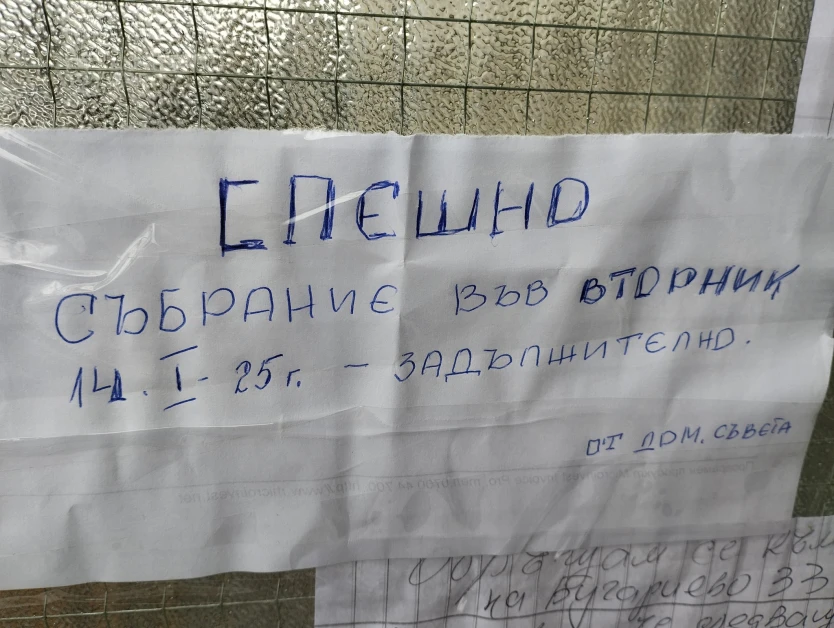 СПЕШНО
СЪБРАНИЕ ВЪВ ВТОРНИК
14. I - 25 г. - ЗАДЪЛЖИТЕЛНО.
ОТ ДОМ. СЪВЕТА
се към
на Бугариево 33